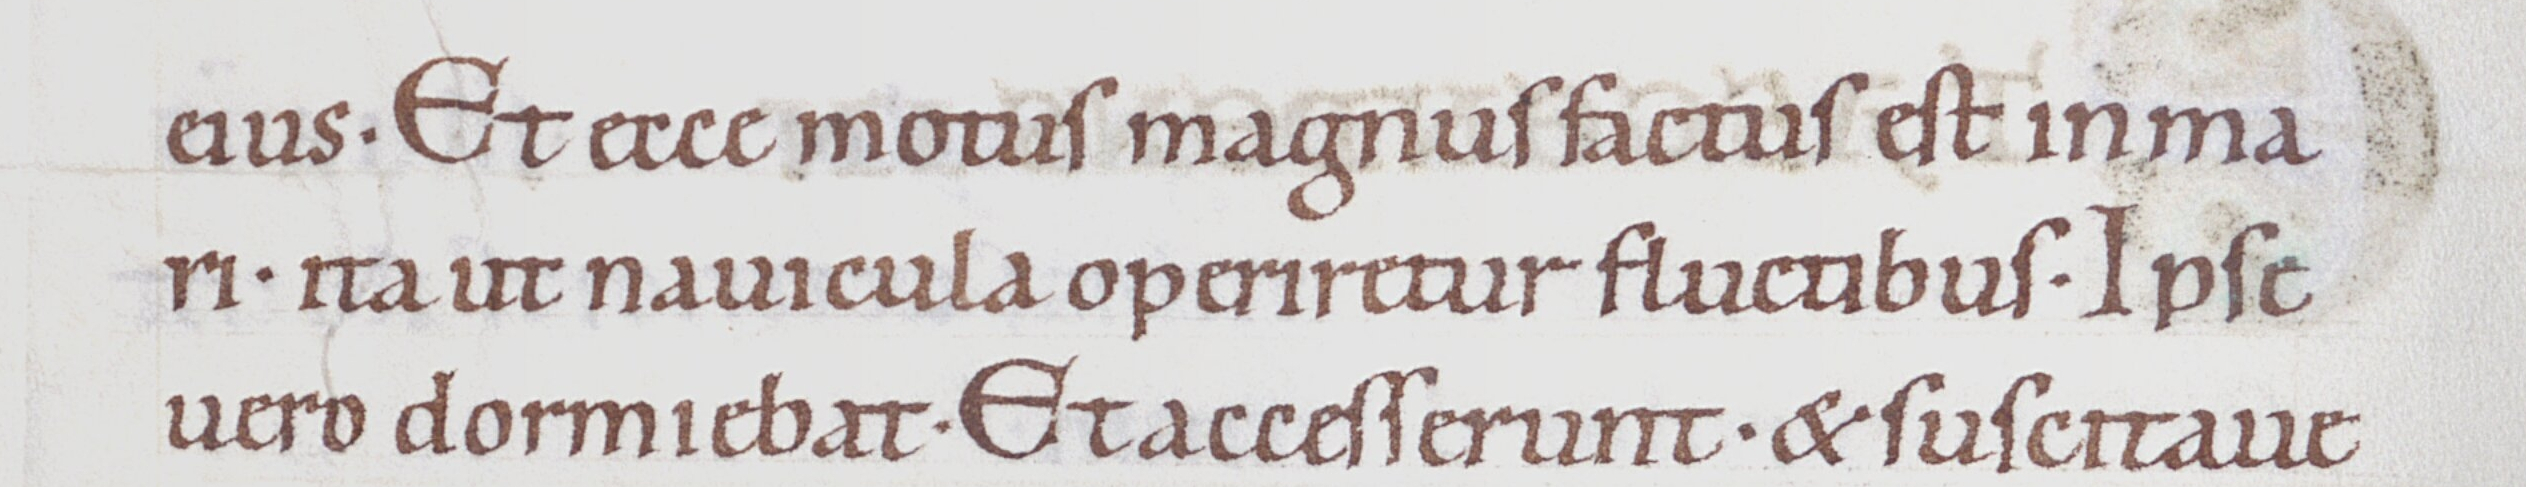 eius· Et ecce motus magnus factus est in ma
ri· ita ut nauicula operiretur fluctibus· Ipse
uero dormiebat· Et accesserunt· & suscitaue